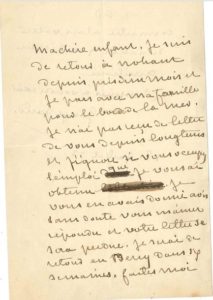 Ma chère enfant, je suis
de retour à Nohant
depuis près d'un mois et
je pars avec ma famille
pour le bord de la mer.
je n'ai pas reçu de lettre
de vous depuis longtems
et j'ignore si vous occupez
l'emploi que je vous ai
obtenu. Je
vous en avais donné avis
sans doute vous m'avez
répondu et votre lettre se
sera perdue. je serai de
retour en Berry dans
semaines. faites moi